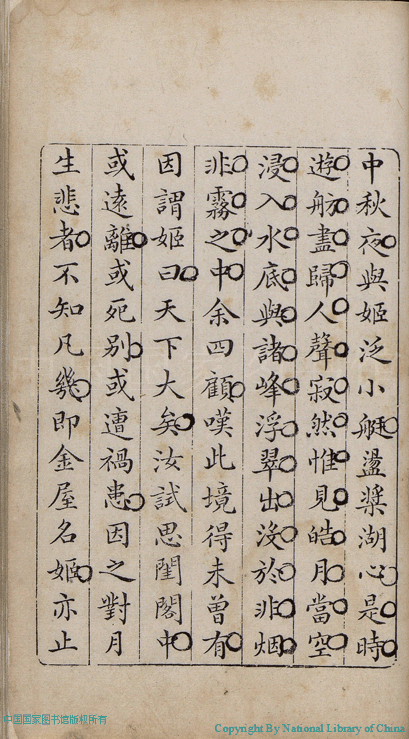 中秋夜與姬泛小艇盪槳湖心是時
遊舫盡歸人聲寂然惟見皓月當空
浸入水底與諸峰浮翠出没於非烟
非霧之中余四顧嘆此境得未曾有
因謂姬曰天下大矣汝試思閨閣中
或遠離或死别或遭禍患因之對月
生悲者不知凡幾即金屋名姬亦止
中国国家图书馆版权所有
Copyright By National Library of China